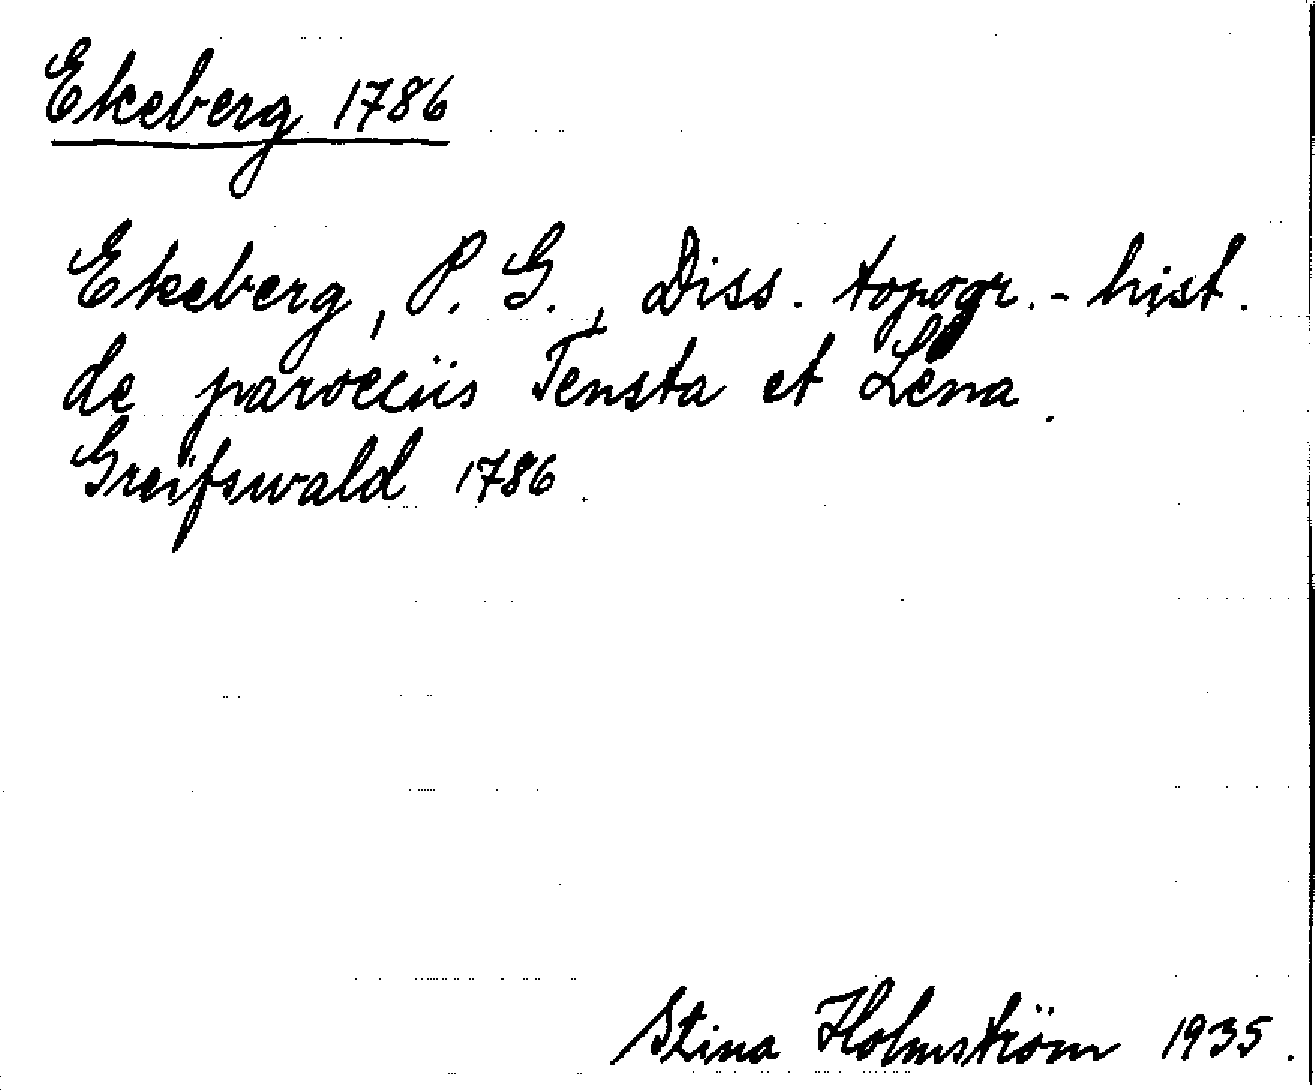 Ekeberg 1786
Ekeberg, P. G., Diss. topogr.-hist.
de paroeciis Tensta et Lena.
Greifswald 1786.
Stina Holmström 1935.